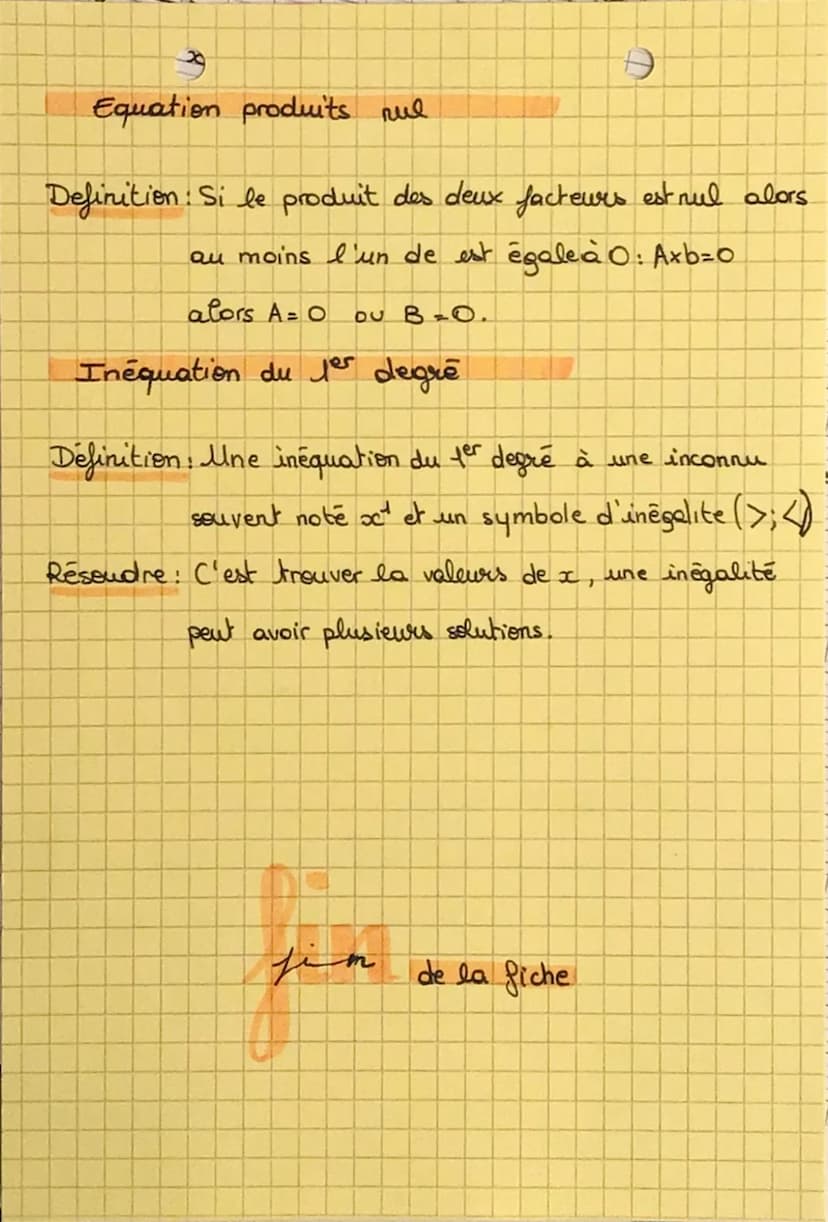 x
Equation produits nul
Definition : Si le produit des deux facteurs est nul alors
au moins l'un de est égale à 0 : Axb=0
alors A = 0 ou B = 0.
Inéquation du 1er degré
Définition : Une inéquation du 1er degré à une inconnu
souvent noté x¹ et un symbole d'inégalite (>; <)
Résoudre : C'est trouver la valeurs de x, une inégalité
peut avoir plusieurs solutions.
fin
fin de la fiche